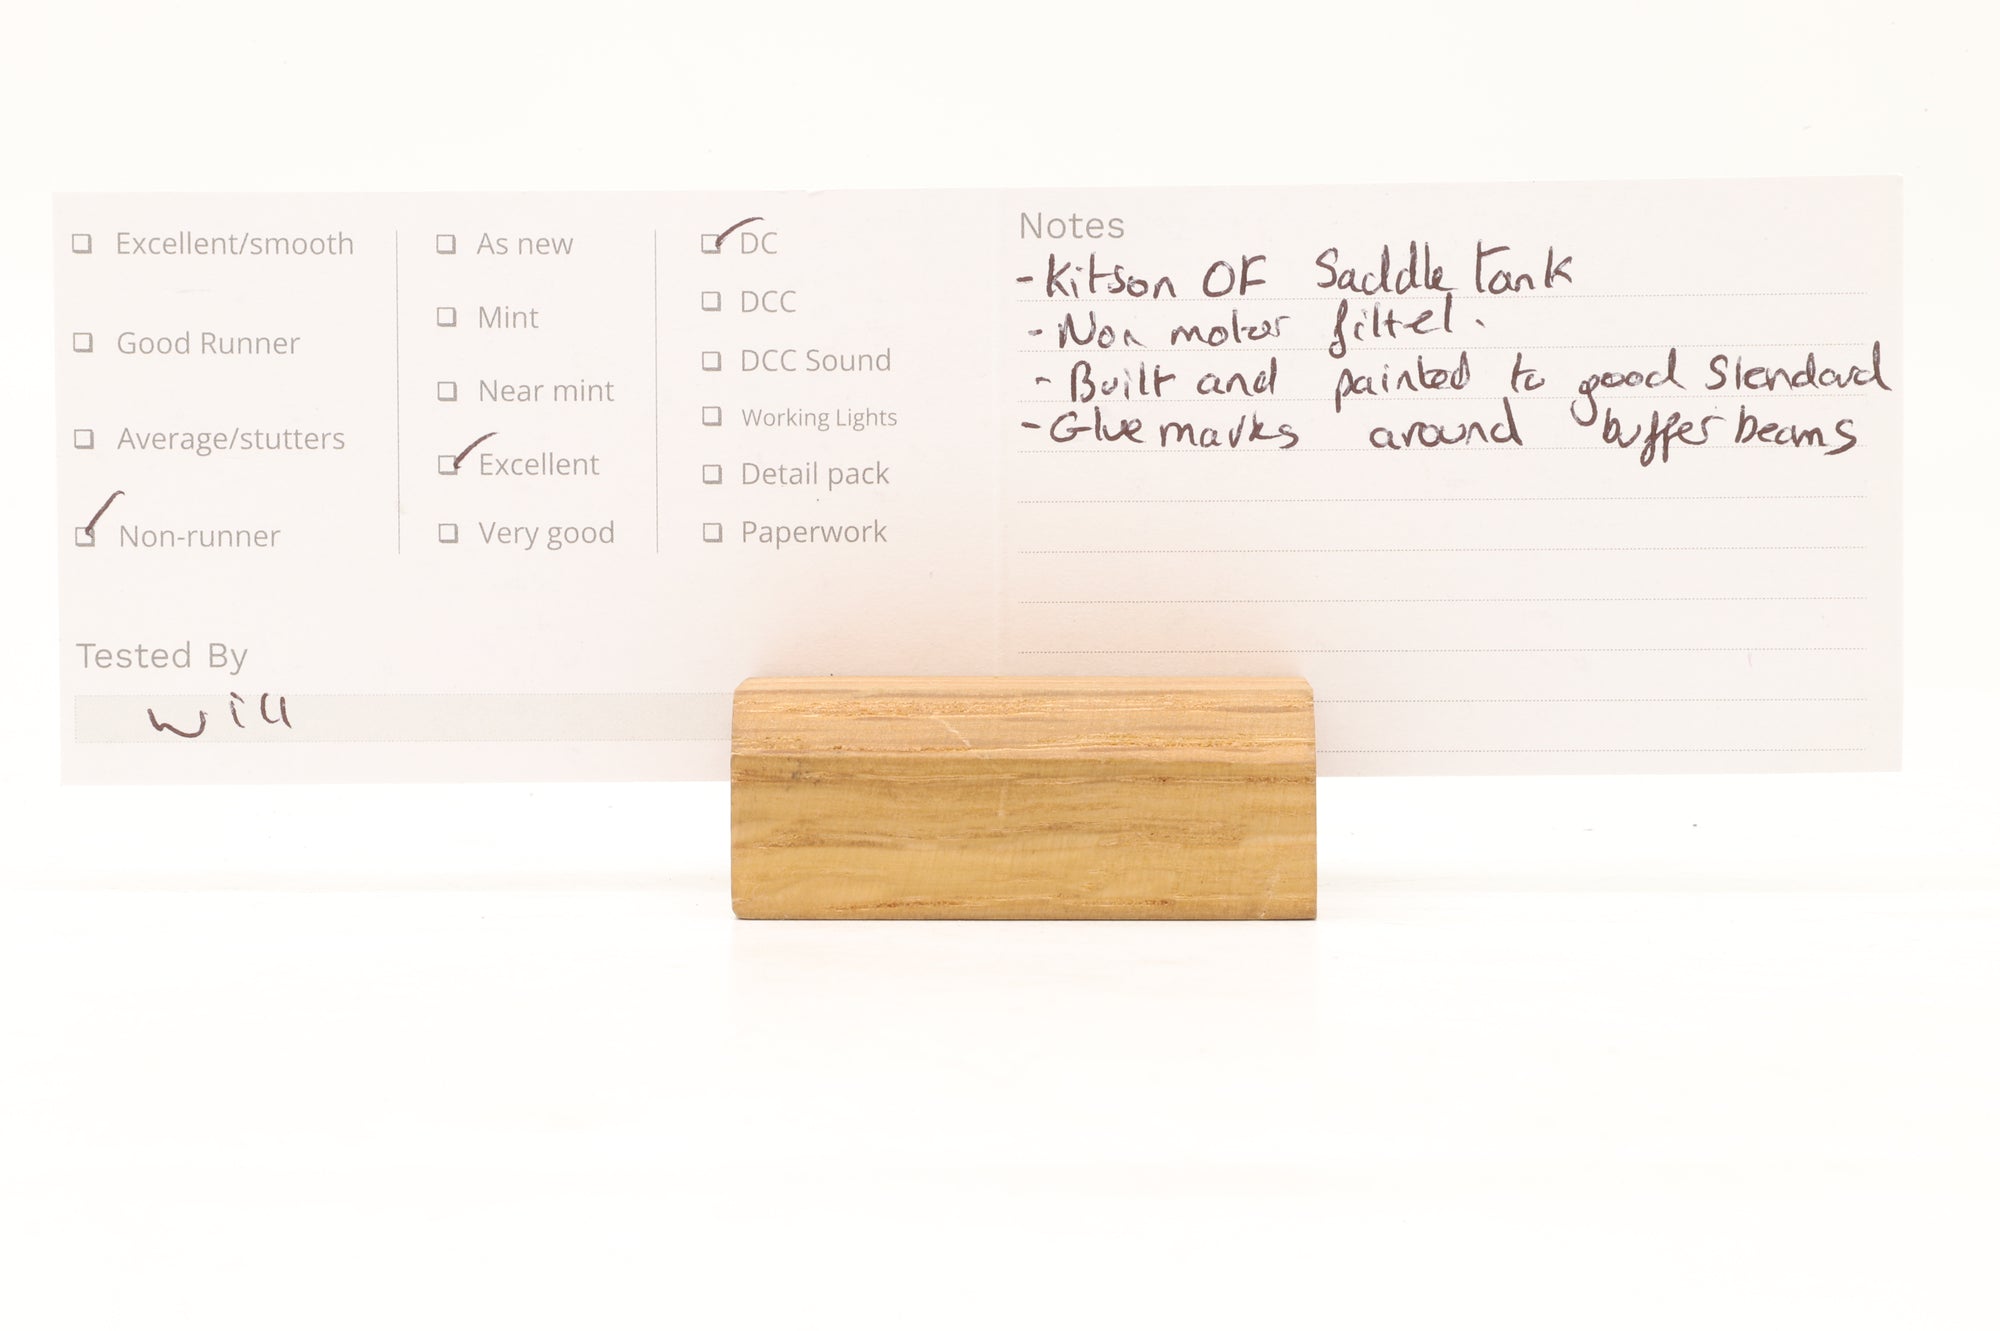 Excellent/smooth
Good Runner
Average/stutters
Non-runner
As new
Mint
Near mint
Excellent
Very good
DC
DCC
DCC Sound
Working Lights
Detail pack
Paperwork
Tested By
Will
Notes
- Kitson OF Saddle tank
- Non motor fitted.
- Built and painted to good Standard
- Glue marks around buffer beams